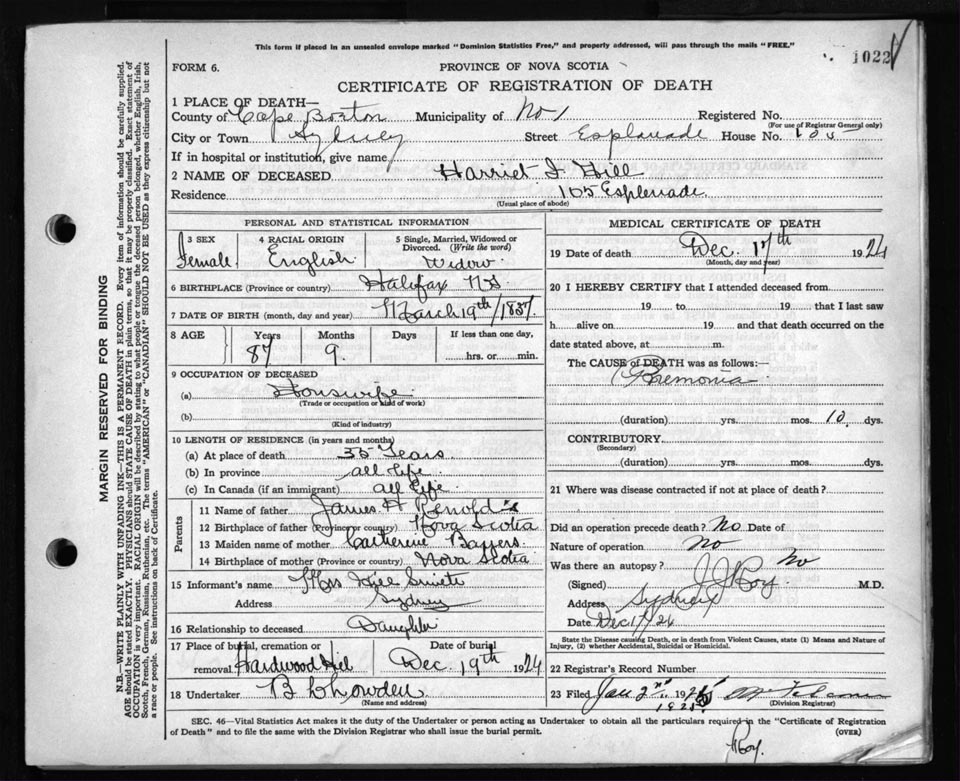 This form if placed in an unsealed envelope marked "Dominion Statistics Free," and properly addressed, will pass through the mails "FREE."
1022
FORM 6.
PROVINCE OF NOVA SCOTIA
CERTIFICATE OF REGISTRATION OF DEATH
1 PLACE OF DEATH—
County of Cape Breton Municipality of No 1 Registered No.
(For use of Registrar General only)
City or Town Sydney Street Esplanade House No. 105
If in hospital or institution, give name
2 NAME OF DECEASED Harriet I Hill
Residence 105 Esplanade
(Usual place of abode)
PERSONAL AND STATISTICAL INFORMATION
3 SEX Female
4 RACIAL ORIGIN English
5 Single, Married, Widowed or Divorced. (Write the word) Widow
6 BIRTHPLACE (Province or country) Halifax N.S.
7 DATE OF BIRTH (month, day and year) March 19th/1837
8 AGE Years Months Days If less than one day,
87 9 hrs. or min.
9 OCCUPATION OF DECEASED
(a) Houswife
(Trade or occupation or kind of work)
(b)
(Kind of industry)
10 LENGTH OF RESIDENCE (in years and months)
(a) At place of death 35 Years
(b) In province all Life
(c) In Canada (if an immigrant) all Life
Parents
11 Name of father James H
12 Birthplace of father (Province or country) Nova Scotia
13 Maiden name of mother Catherine
14 Birthplace of mother (Province or country) Nova Scotia
15 Informant's name Mrs
Address Sydney
16 Relationship to deceased Daughter
17 Place of burial, cremation or removal Hardwood Hill
Date of burial Dec. 19th 1924
18 Undertaker
(Name and address)
MEDICAL CERTIFICATE OF DEATH
19 Date of death Dec. 17th 1924
(Month, day and year)
20 I HEREBY CERTIFY that I attended deceased from
19 to 19 that I last saw
h alive on 19 and that death occurred on the
date stated above, at m.
The CAUSE of DEATH was as follows:
Pnemonia
(duration) yrs. mos. 10 dys.
CONTRIBUTORY
(Secondary)
(duration) yrs. mos. dys.
21 Where was disease contracted if not at place of death?
Did an operation precede death? No Date of
Nature of operation No
Was there an autopsy? No
(Signed) Roy M.D.
Address Sydney
Date Dec 17/24
State the Disease causing Death, or in death from Violent Causes, state (1) Means and Nature of Injury, (2) whether Accidental, Suicidal or Homicidal.
22 Registrar's Record Number
23 Filed Jan 2nd 1925
1925
(Division Registrar)
SEC. 46—Vital Statistics Act makes it the duty of the Undertaker or person acting as Undertaker to obtain all the particulars required in the "Certificate of Registration
of Death" and to file the same with the Division Registrar who shall issue the burial permit.
(OVER)
Roy.
MARGIN RESERVED FOR BINDING
N.B.—WRITE PLAINLY WITH UNFADING INK—THIS IS A PERMANENT RECORD. Every item of information should be carefully supplied.
AGE should be stated EXACTLY. PHYSICIANS should STATE CAUSE OF DEATH in plain terms, so that it may be properly classified. Exact statement of
OCCUPATION is very important. RACIAL ORIGIN will be described by stating to what people or tongue the deceased person belonged, whether English, Irish,
Scotch, French, German, Russian, Ruthenian, etc. The terms "AMERICAN" or "CANADIAN" SHOULD NOT BE USED as they express citizenship but not
a race or people. See instructions on back of Certificate.